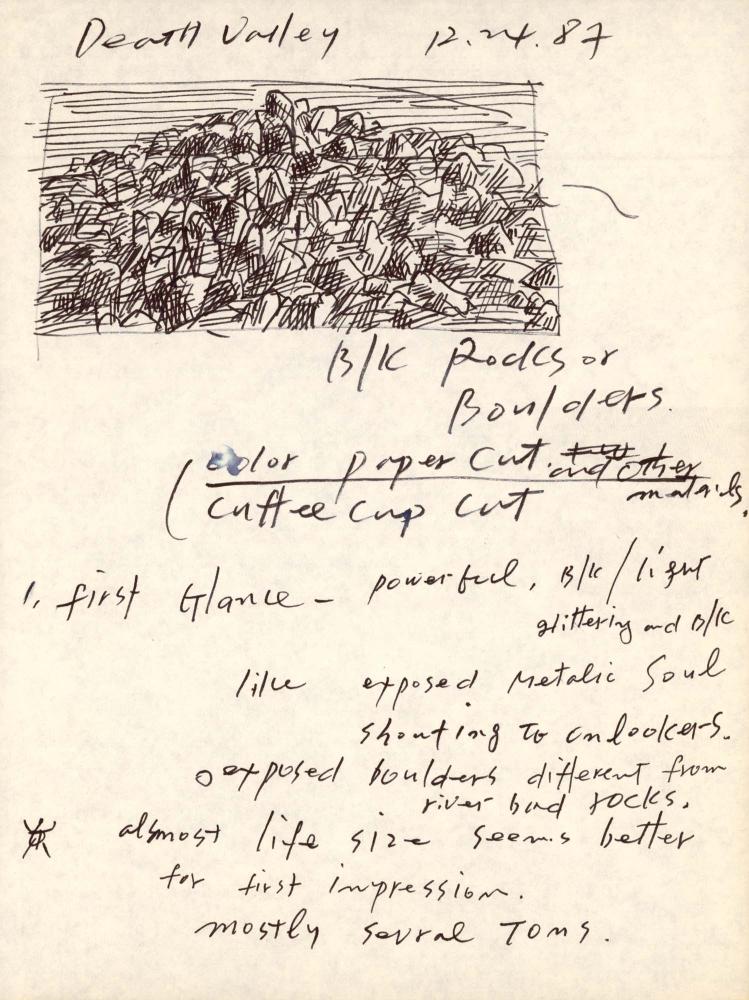 Death Valley 12.24.87
B/K Rocks or
Boulders.
color paper cut and other
materials.
Cuffee Cup Cut
1. first Glance - powerful, B/K / light
glittering and B/K
like exposed Metalic Soul
shouting to onlookers.
o exposed boulders different from
river bad rocks.
alsmost life size seems better
for first impression.
mostly sevral Toms.